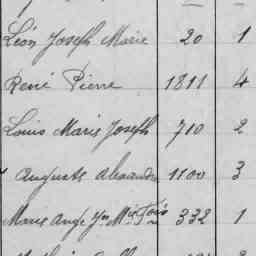 Léon Joseph Marie 20 1
René Pierre 1811 4
Louis Marie Joseph 710 2
Auguste Alexandre 1100 3
Marie Ange 332 1